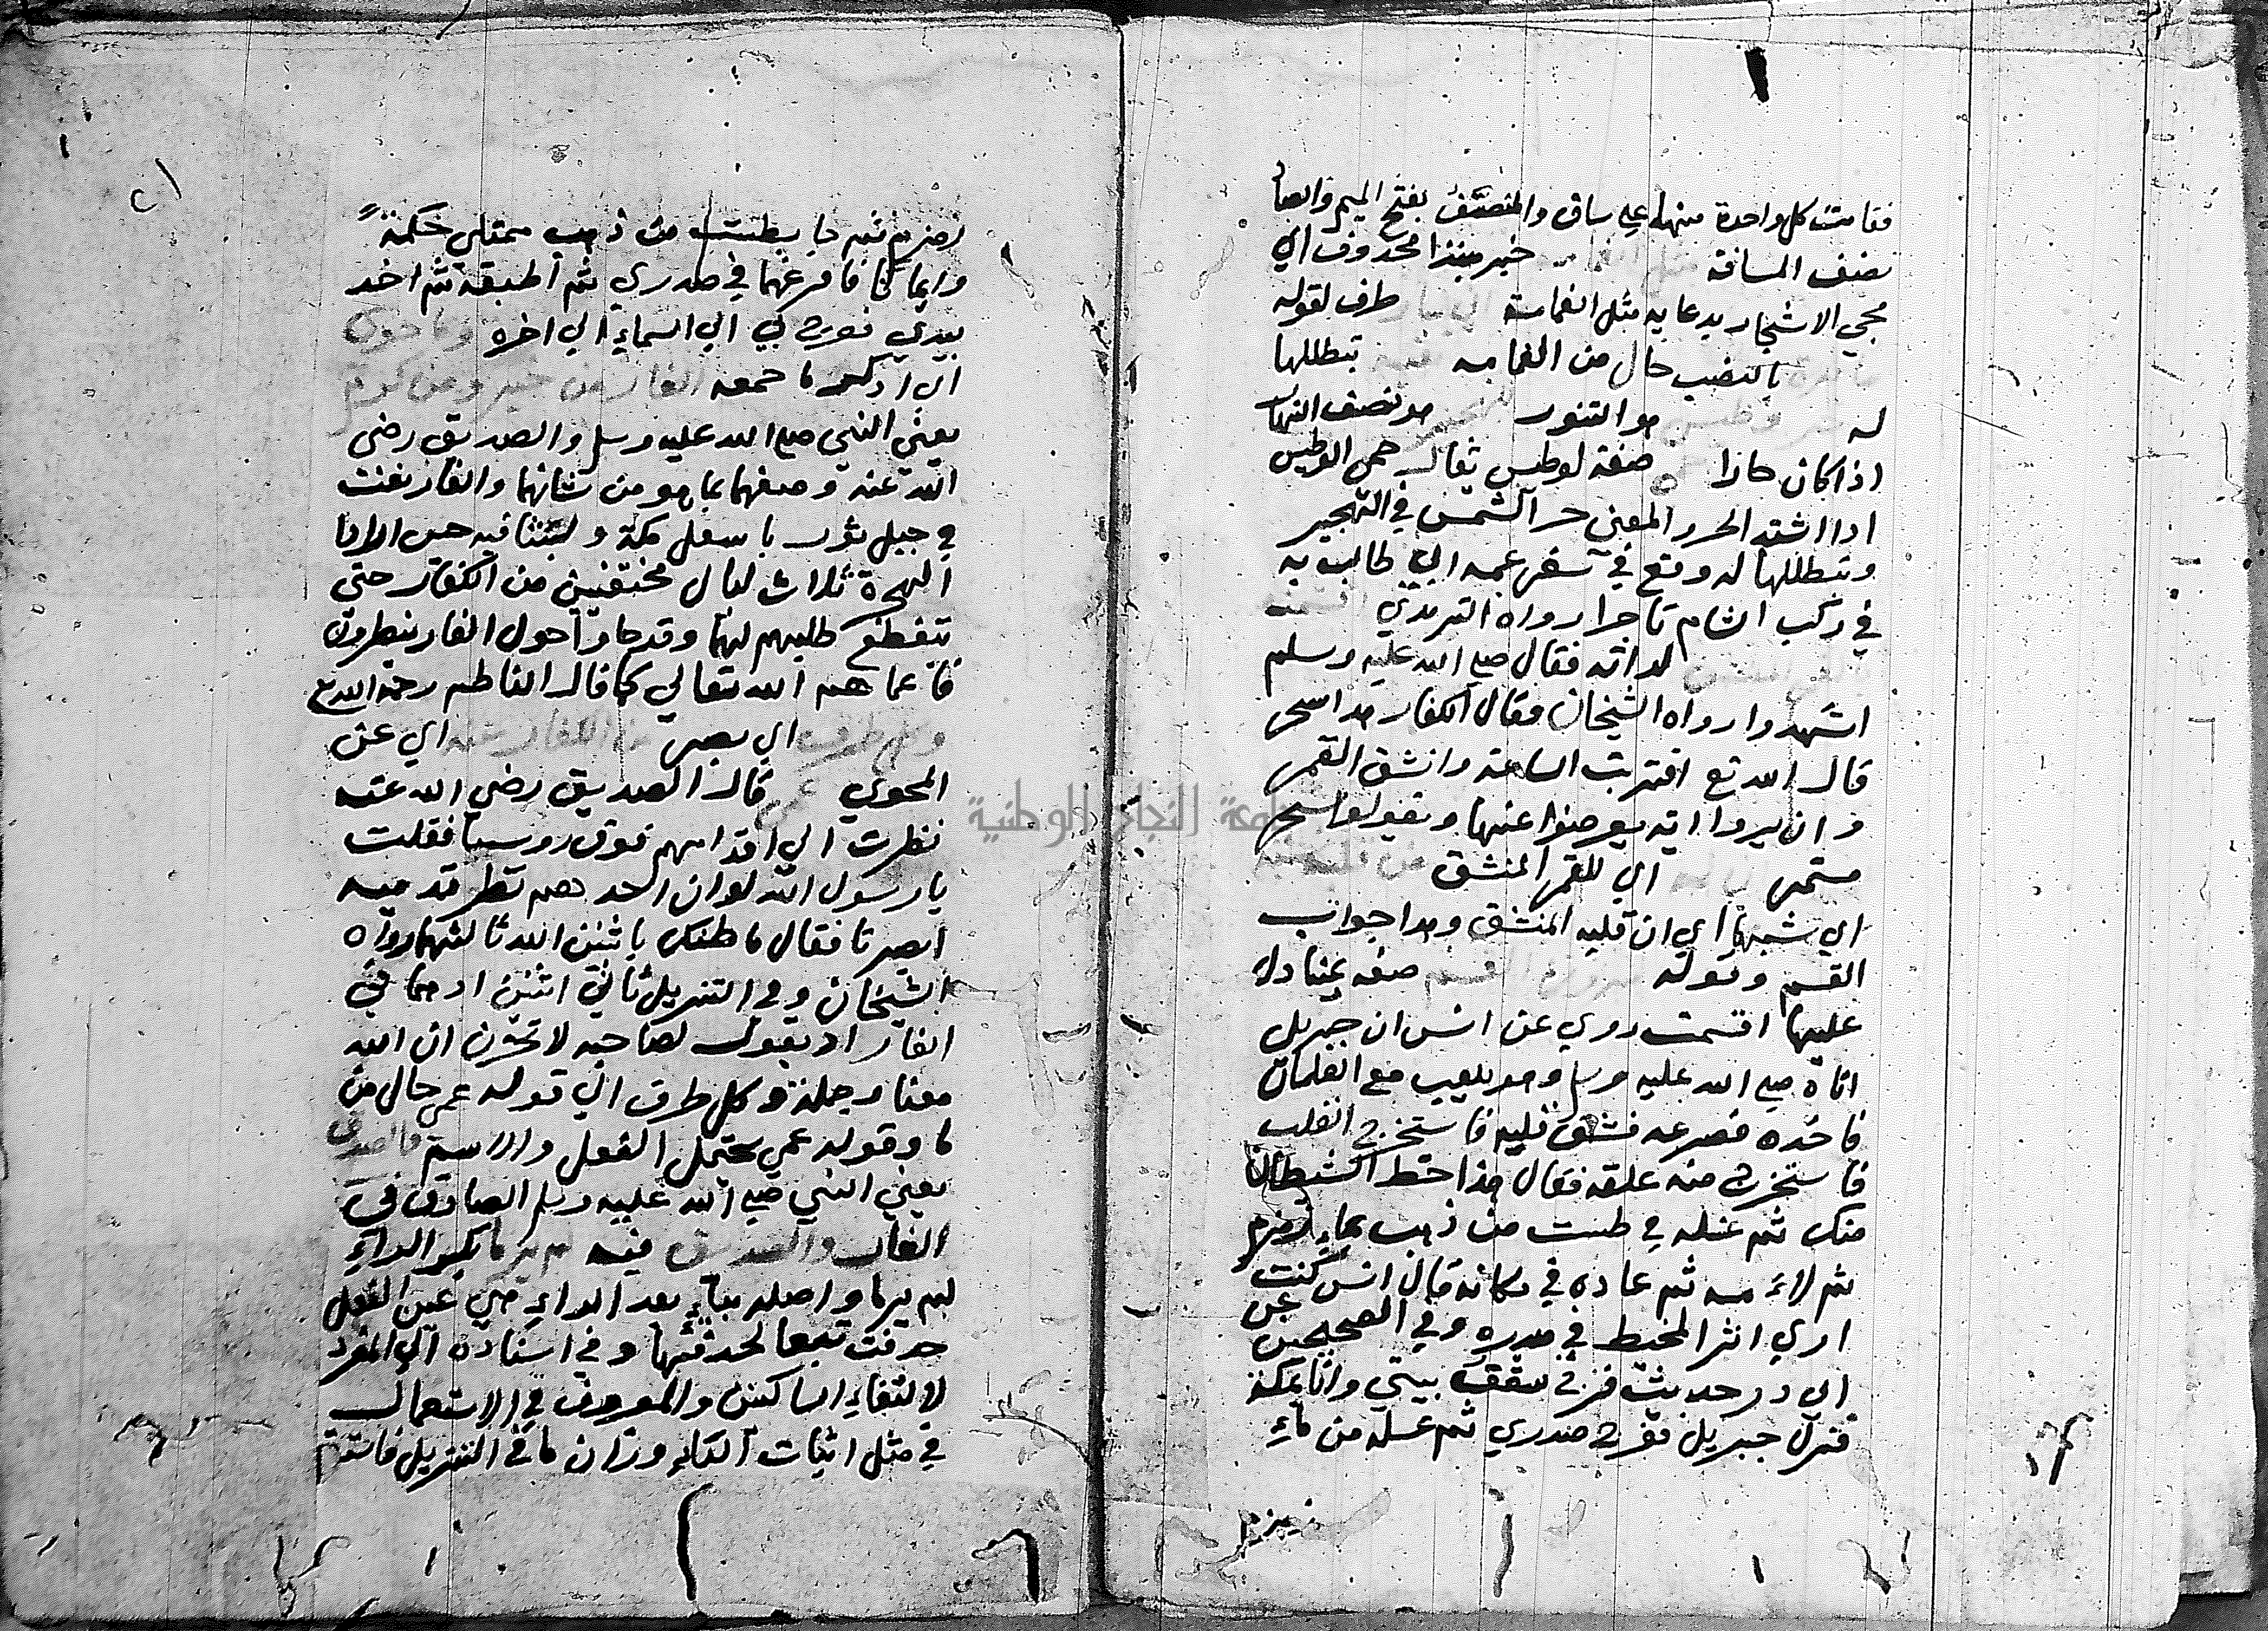 فقامت كل واحدة منها على ساق والمنصف بفتح الميم والصاد
نصف المسافة مثل الغما خبر مبتدا محذوف اي
مجي الاشجار بدعايه مثل الغمامة طرف لقوله
بالنصب حال من الغمامه تظللها
له هو التنور هو نصف النهار
اذا كان حارا صفة لوطيس يقال حمى الوطيس
اذا اشتد الحر والمعنى حر الشمس في التهجير
وتظللها له وقع في سفر عمه ابي طالب به
في ركب الشام تاجرا رواه الترمذي
لداته فقال صلى الله عليه وسلم
اشهدوا رواه الشيخان فقال الكفار هذا سحر
قال الله تع اقتربت الساعة وانشق القمر
وان يروا اية يعرضوا عنها ويقولوا سحر
مستمر اي للقمر المنشق من قلبه
اي شبها اي ان قلبه المنشق وهذا جواب
القسم وقوله مبرورة القسم صفة يمينا دل
عليها اقسمت روي عن انس ان جبريل
اتاه صلى الله عليه وسلم وهو يلعب مع الغلمان
فاخذه فصرعه فشق قلبه فاستخرج القلب
فاستخرج منه علقه فقال هذا حظ الشيطان
منك ثم غسله في طست من ذهب بماء زمزم
ثم لامه ثم عاده في مكانه قال انس كنت
اري اثر المخيط في صدره وفي الصحيحين عن
ابي ذر حديث فرج سقف بيتي وانا بمكة
فنزل جبريل ففرج صدري ثم غسله من ماء
زمزم
٢١
زمزم ثم جا بطست من ذهب ممتلي حكمة
وايمانا فافرغهما في صدري ثم اطبقه ثم اخذ
بيدي فعرج بي الي السماء الي اخره وما حوى
اي اذكر ما جمعه الغار من خير ومن كرم
يعني النبي صلى الله عليه وسلم والصديق رضي
الله عنه وصفهما بما هو من شانهما والغار نقب
في جبل ثور باسفل مكة ولبثا فيه حين ارادا
الهجرة ثلاث ليال مختفيين من الكفار حتى
تنقطع طلبهم لهما وقد جاوا حول الغار ينظرون
فاعماهم الله تعالي كما قال الناظم رحمه الله تع
وكل طرف اي بصر من الكفار عنه اي عن
المحوي عمي قال الصديق رضي الله عنه
نظرت الي اقدامهم فوق روسنا فقلت
يا رسول الله لو ان احدهم نظر قدميه
ابصرنا فقال ما ظنك باثنين الله ثالثهما رواه
الشيخان وفي التنزيل ثاني اثنين اذ هما في
الغار اذ يقول لصاحبه لا تحزن ان الله
معنا وجملة وكل طرف الي قوله عمي حال من
ما وقوله عمي يحتمل الفعل والاسم فالصدق
يعني النبي صلى الله عليه وسلم الصادق في
الغار والصديق فيه لم يرما بكسر الراء
لم يبرحا واصله بياء بعد الراء هي عين الفعل
حذفت تبعا لحذفها في اسناده الي المفرد
لالتقاء الساكنين والمعروف في الاستعمال
في مثل اثبات الياء وزان ما في التنزيل فاستقم
جامعة النجاح الوطنية